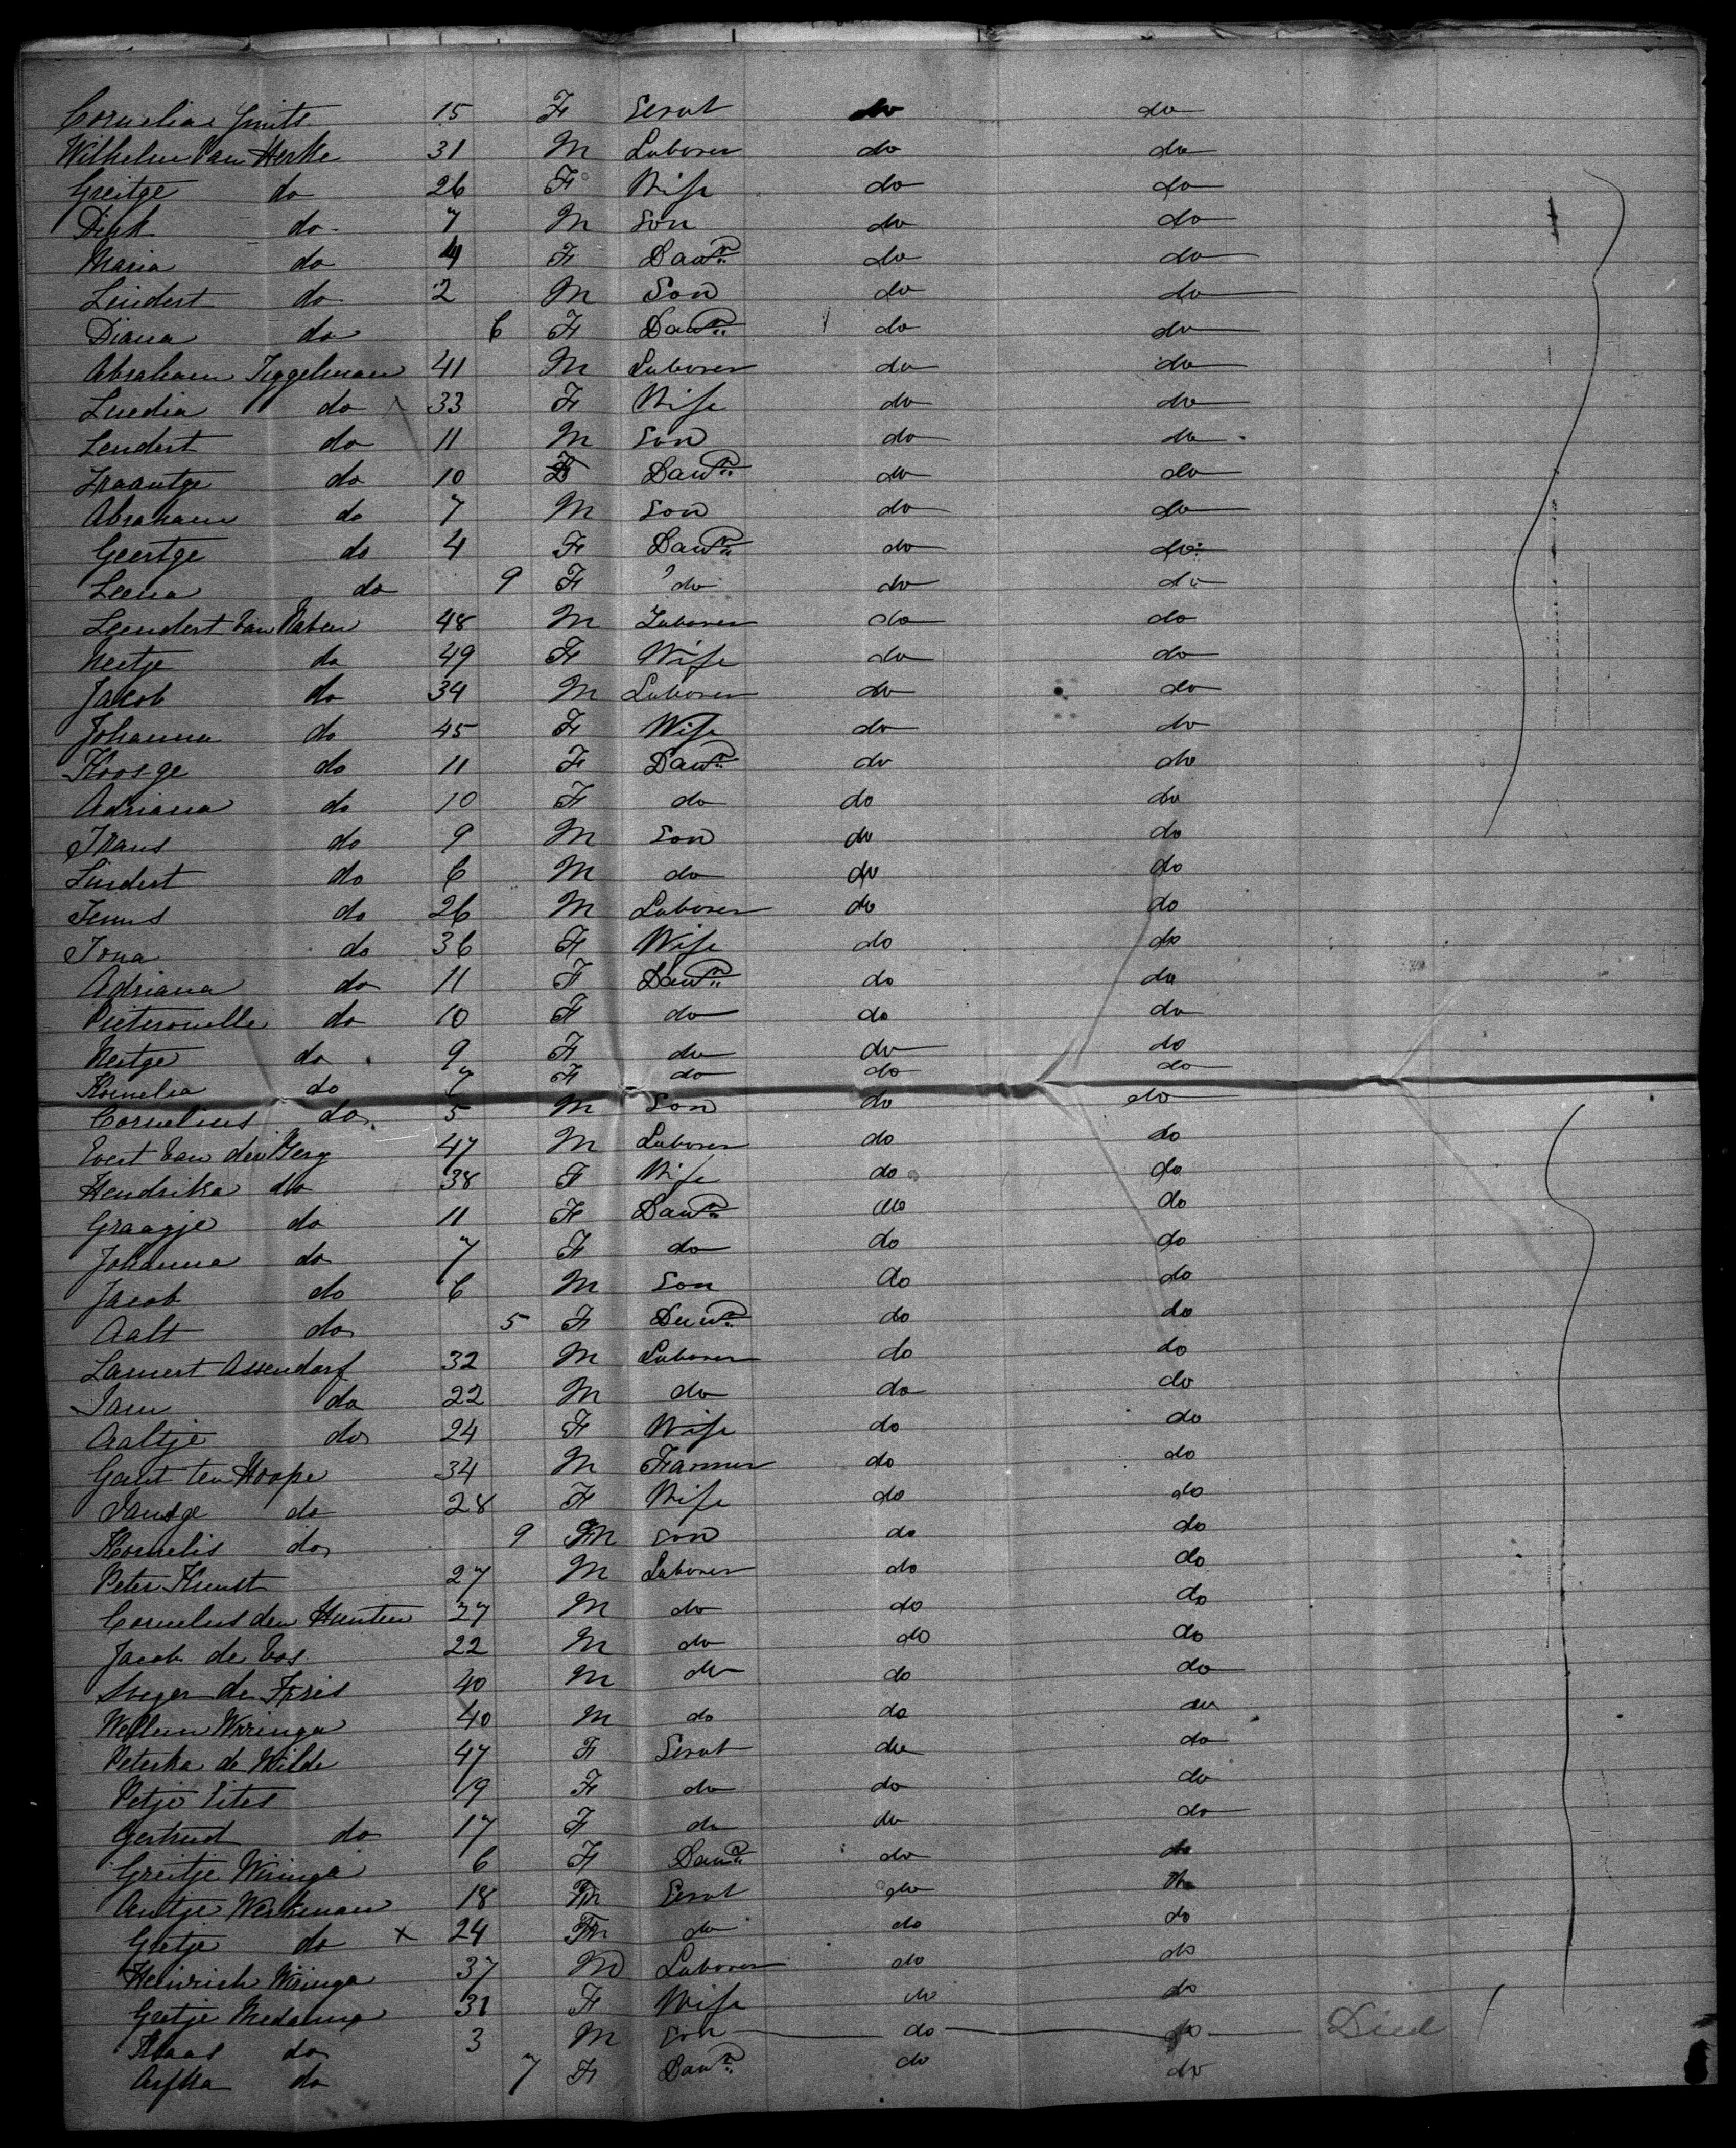 Cornelia Smits 15 F Servt do do
Wilhelm Van Herke 31 M Laborer do do
Greitge do 26 F Wife do do
Dirk do 7 M Son do do
Maria do 4 F Dautr do do
Lindert do 2 M Son do do
Diana do 6 F Dautr do do
Abraham Tiggelman 41 M Laborer do do
Luedia do 33 F Wife do do
Lendert do 11 M Son do do
Fraantge do 10 F Dautr do do
Abraham do 7 M Son do do
Geertge do 4 F Dautr do do
Leena do 9 F do do do
Leendert Van 48 M Laborer do do
Neetje do 49 F Wife do do
Jacob do 34 M Laborer do do
Johanna do 45 F Wife do do
Koosge do 11 F Dautr do do
Adriana do 10 F do do do
Frans do 9 M Son do do
Lindert do 6 M do do do
Teunis do 26 M Laborer do do
Tona do 36 F Wife do do
Adriana do 11 F Dautr do do
Pieternelle do 10 F do do do
Neitge do 9 F do do do
Kornelia do 7 F do do do
Cornelius do 5 M Son do do
Evert Van den Berg 47 M Laborer do do
Hendrika do 38 F Wife do do
Graagje do 11 F Dautr do do
Johanna do 7 F do do do
Jacob do 6 M Son do do
Aalt do 5 F Dautr do do
Lamert Assendorf 32 M Laborer do do
Jam do 22 M do do do
Aaltje do 24 F Wife do do
Garit ten Hoope 34 M Farmer do do
Jansge do 28 F Wife do do
Kornelis do 9 M Son do do
Peter Kunst 27 M Laborer do do
Cornelus den Hunten 27 M do do do
Jacob de Vos 22 M do do do
de Fries 40 M do do do
Wellem Wiringa 40 M do do do
Peterka de Wilde 47 F Servt do do
Petje Eites 19 F do do do
Gertrud do 17 F do do do
Greitje Wiringa 6 F Dautr do do
Antje Werkman 18 F Servt do do
Gretje do x 24 F do do do
Heinrich Wiringa 37 M Laborer do do
Gretje Medema 31 F Wife do do
Klaas do 3 M Son do do Died
do 7 F Dautr do do